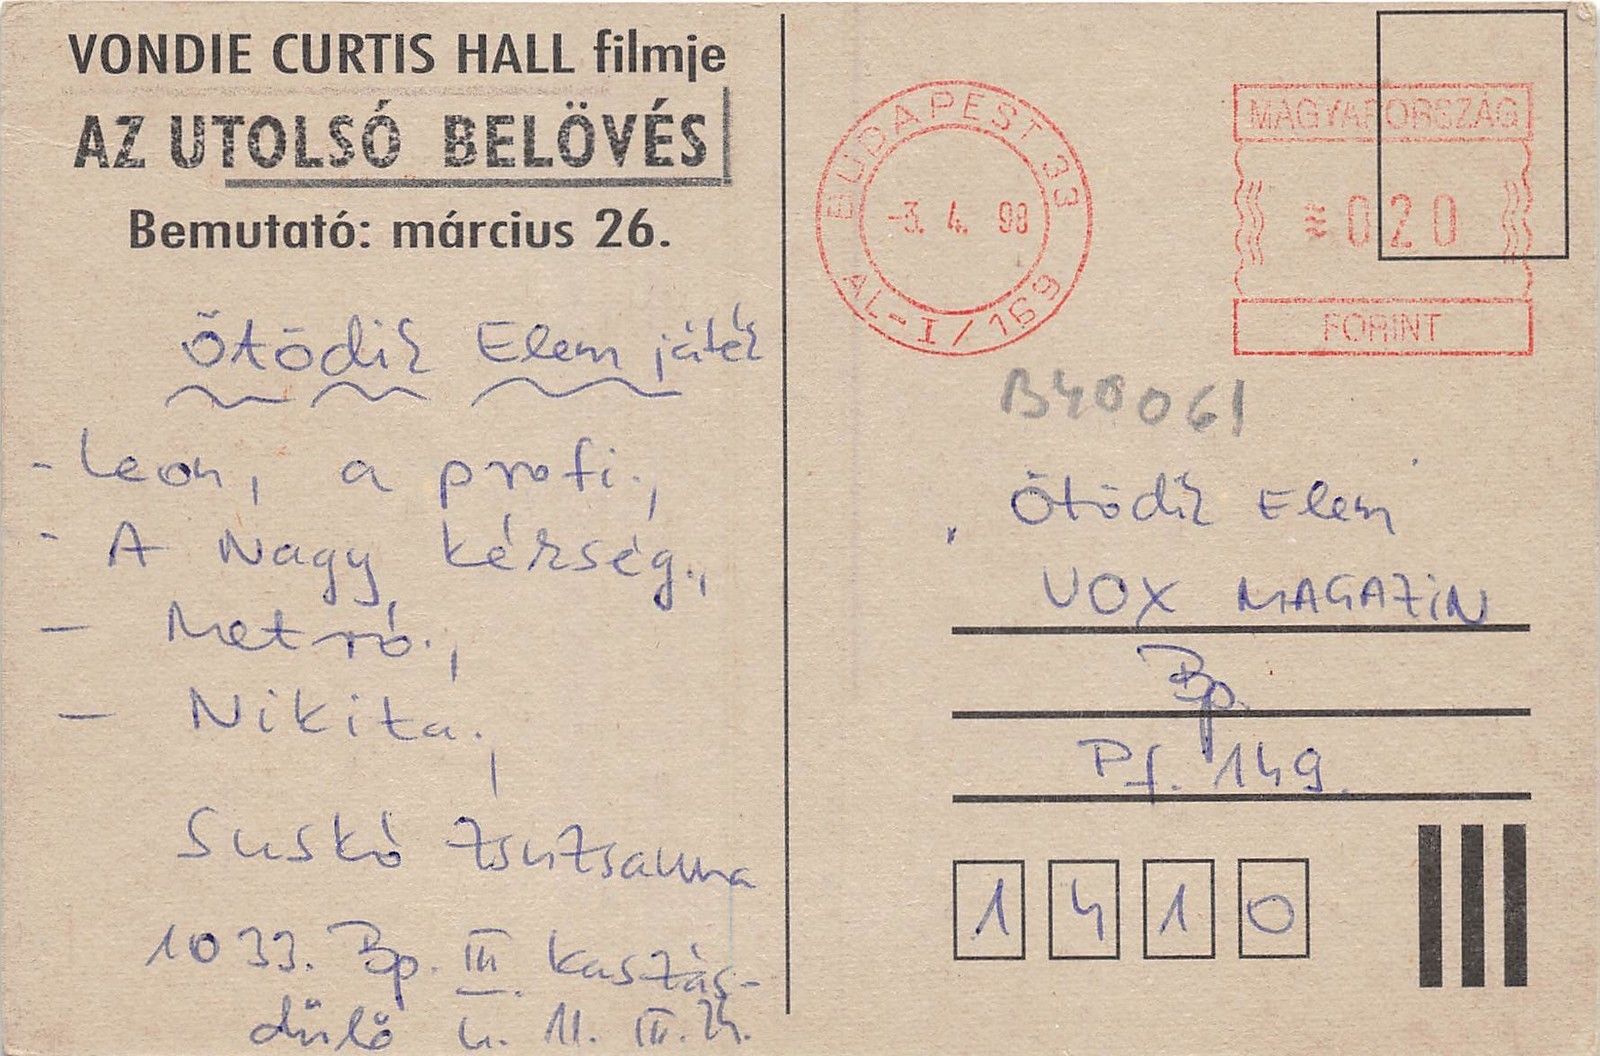 VONDIE CURTIS HALL filmje
AZ UTOLSÓ BELÖVÉS
Bemutató: március 26.
Ötödik Elem játék
- Leon, a profi.,
- A Nagy kékség.,
- Metró.,
- Nikita.,
Suskó Zsuzsanna
1033. Bp. III. Kaszás-
dülő u. 11. III.
BUDAPEST 33
-3. 4. 98
AL-I/169
MAGYARORSZÁG
≈020
FORINT
B40061
Ötödik Elem
VOX MAGAZIN
Bp.
Pf. 149.
1410